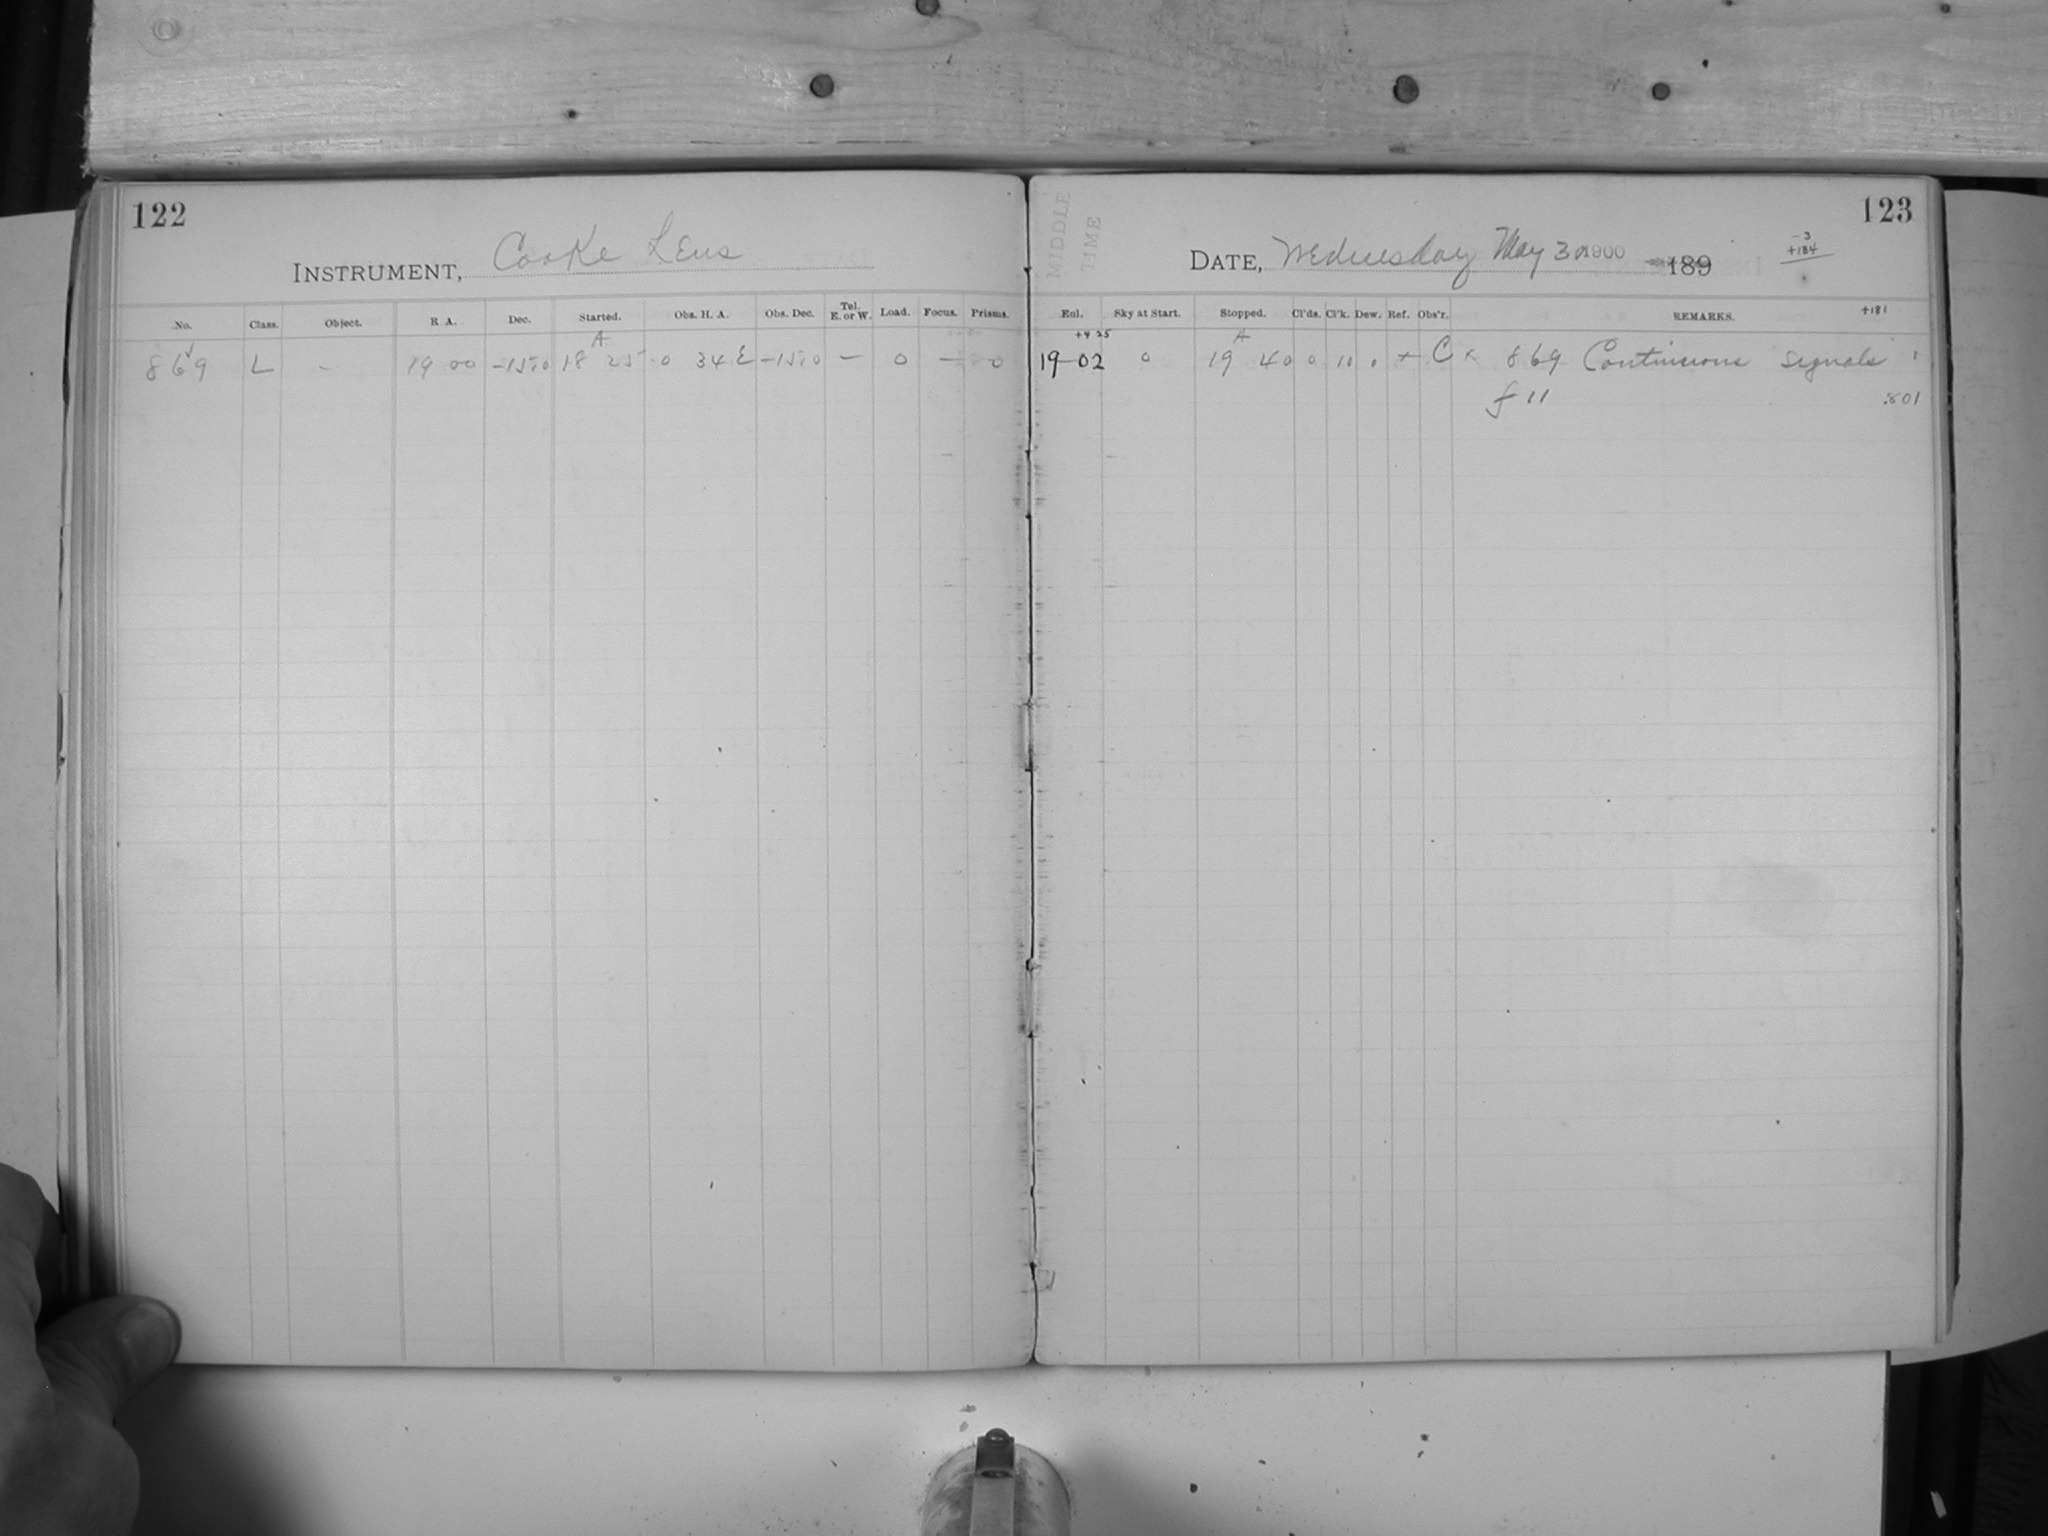 122
INSTRUMENT, Cooke Lens
No. Class. Object. R. A. Dec. Started. Obs. H. A. Obs. Dec. Tel. E. or W. Load. Focus. Prisms.
A
869 L - 19 00 -15,0 18 25 0 34 E -15,0 - 0 - 0
123
MIDDLE TIME
DATE, Wednesday May 30 1900 189
-3
+184
+181
Eul. Sky at Start. Stopped. Cl'ds. Cl'k. Dew. Ref. Obs'r. REMARKS.
+4 25 A
19-02 0 19 40 0 10 0 + C × 869 Continuous signals
f 11 .801